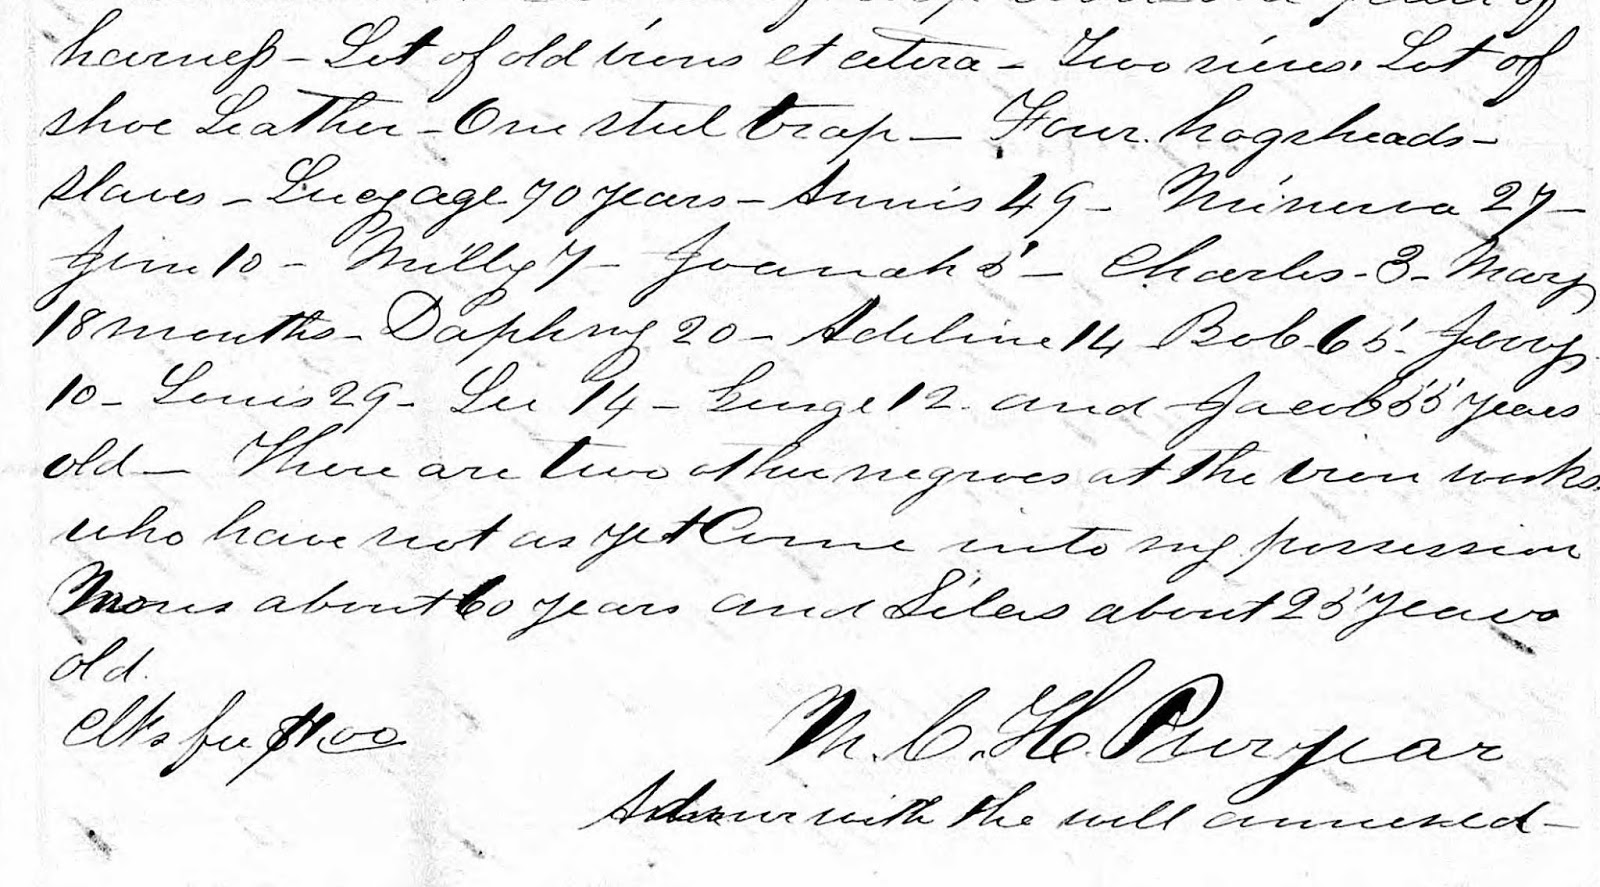 of
harness - Lot of old irons et cetera - Two sieves. Lot of
shoe Leather - One steel trap - Four hogsheads -
slaves - Lucy age 70 years - Annis 49 - Minerva 27 -
Jim 10 - Milly 7 - Joanah 5 - Charles - 3 - Mary
18 months - Daphny 20 - Adeline 14 Bob 65 - Jerry
10 - Louis 29 - Lee 14 - 12 and Jacob 55 years
old - There are two other negroes at the iron works
who have not as yet Come into my possession
about 60 years and Silas about 25 years
old.
Clks fee $1.00
M. C. H. Puryear
Admr with the will annexed -